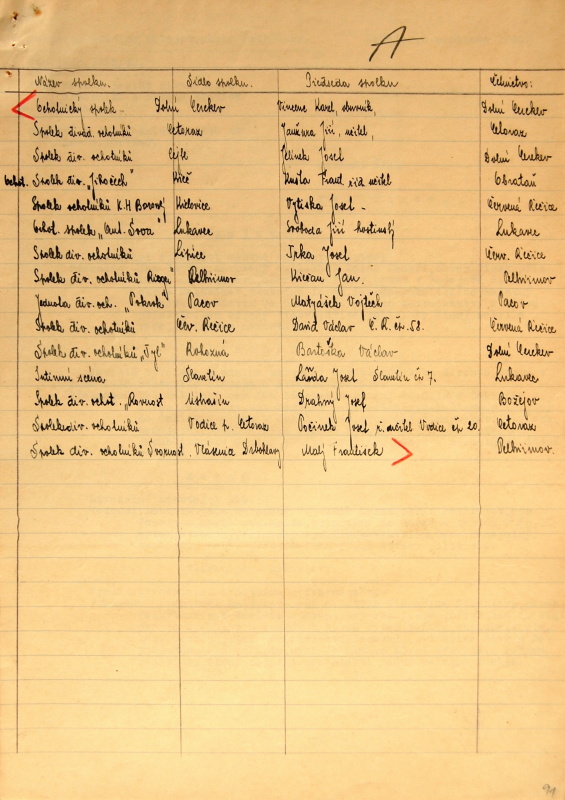 A
Název spolku. Sídlo spolku. Předseda spolku Četnictvo:
Ochotnický spolek - Dolní Cerekev Vincenc Karel, Dolní Cerekev
Spolek divad. ochotníků Cetoraz Jiří, učitel, Cetoraz
Spolek div. ochotníků Cejle Jelínek Josef Dolní Cerekev
Ochot. Spolek div. "Jirásek" Frant. říd. učitel Obrataň
Spolek ochotníků K.H. Borovský Vytiska Josef - Červená Řečice
Ochot. spolek "Ant. Sova" Lukavec Svoboda Jiří hostinský Lukavec
Spolek div. ochotníků Lipice Trka Josef Červ. Řečice
Spolek div. ochotníků Rieger" Pelhřimov Jan. Pelhřimov
Jednota div. och. "Pokrok" Pacov Matyášek Vojtěch Pacov
Spolek div. ochotníků Červ. Řečice David Václav Č. Ř. čp. 58. Červená Řečice
Spolek div. ochotníků "Tyl" Rohozná Bartoška Václav Dolní Cerekev
Intimní scéna Slavětín Josef Slavětín čp 7. Lukavec
Spolek div. ochot. "Rovnost Drahný Josef Božejov
Spolek div. ochotníků Vodice p. Cetoraz Počinek Josef ř. učitel Vodice čp 20. Cetoraz
Spolek div. ochotníků Svornost. Vlásenice Drbohlavy Malý František Pelhřimov.
91